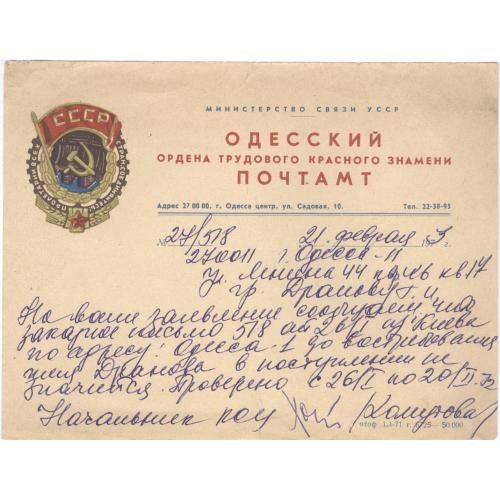 СССР
МИНИСТЕРСТВО СВЯЗИ УССР
ОДЕССКИЙ
ОРДЕНА ТРУДОВОГО КРАСНОГО ЗНАМЕНИ
ПОЧТАМТ
Адрес 27 00 00, г. Одесса центр, ул. Садовая, 10. Тел. 22-38-95
№ 27/518 21 февраля 1973 г.
270011 г. Одесса-11
ул. Ленина 44 кв 17
гр. Драпову Г. И
На ваше заявление сообщаем что
заказное письмо 518 из Киева
по адресу: Одесса 1 до востребования
Драпова в поступлении не
значится. Проверено с 26/I по 20/II-73
Начальник
1.1-71 г. 50 000